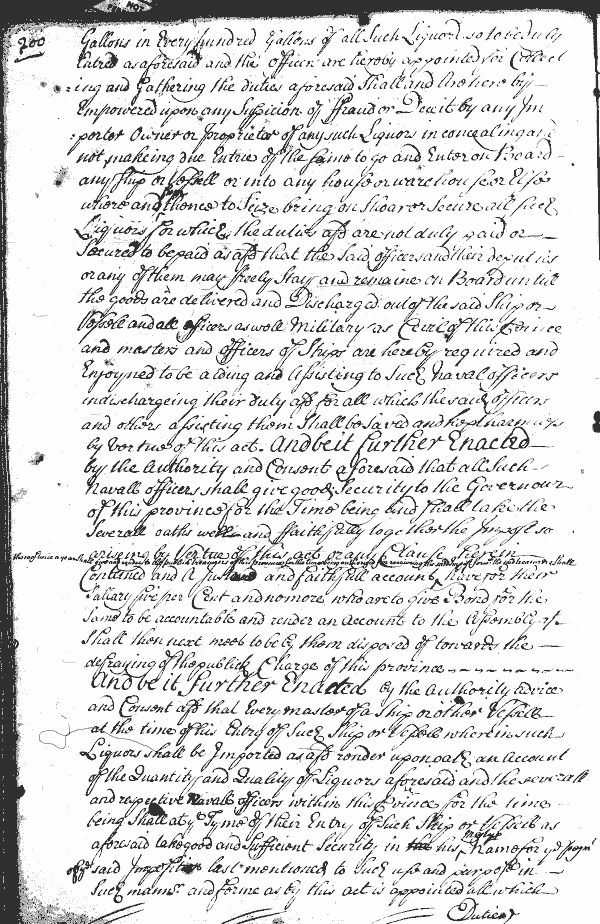 200
Gallons in Every hundred Gallons of all Such Liquors so to be duly
Entred as aforesaid and the officers are hereby appointed for Collect
ing and Gathering the duties aforesaid Shall and Are hereby
Empowered upon any Suspicion of ffraud or Deceit by any Im
porter Owner or Proprietor of any such Liquors in concealing and
not makeing due Entries of the same to go and Enter on Board
any Ship or Vessell or into any house or warehouse or Else
where and from thence to Seize bring on Shoar or Secure all such
Liquors for which the duties afsd are not duly paid or
Secured to be paid as afsd that the Said officers and their deputies
or any of them may freely Stay and remaine on Board untill
the goods are delivered and Discharged out of the said Ship or
Vessell and all officers as well Military as Civil of this Province
and masters and officers of Ships are hereby required and
Enjoyned to be aiding and Assisting to Such Navall officers
in dischargeing their duty afsd for all which the said officers
and others assisting them Shall be Saved and kept harmless
by Vertue of this act. And be it further Enacted
by the Authority and Consent aforesaid that all Such
Navall officers shall give good Security to the Governour
of this province for the Time being and shall take the
Severall oaths well and ffaithfully together the Impost so
arising by Vertue of this act or any Clause herein
Contained and A Just and faithfull account
have for their
Sallary five per Cent and no more who are to give Bond for the
Same to be accountable and render an Account to the Assembly yt
Shall then next meet to be by them disposed of towards the
defraying of the publick Charge of this province
And be it further Enacted by the Authority advice
and Consent afsd that Every master of a Ship or other Vessell
at the time of his Entry of Such Ship or Vessell wherein such
Liquors shall be Imported as afsd render upon oath an Account
of the Quantity and Quality of Liquors aforesaid and the severall
and respective Navall officers within this Province for the time
being Shall at ye Tyme of their Entry of Such Ship or Vessell as
aforesaid take good and Sufficient Security in his Name for ye
said Imposition last mentioned to Such use and purpose in
Such mannr and forme as by this act is appointed all which
Duties